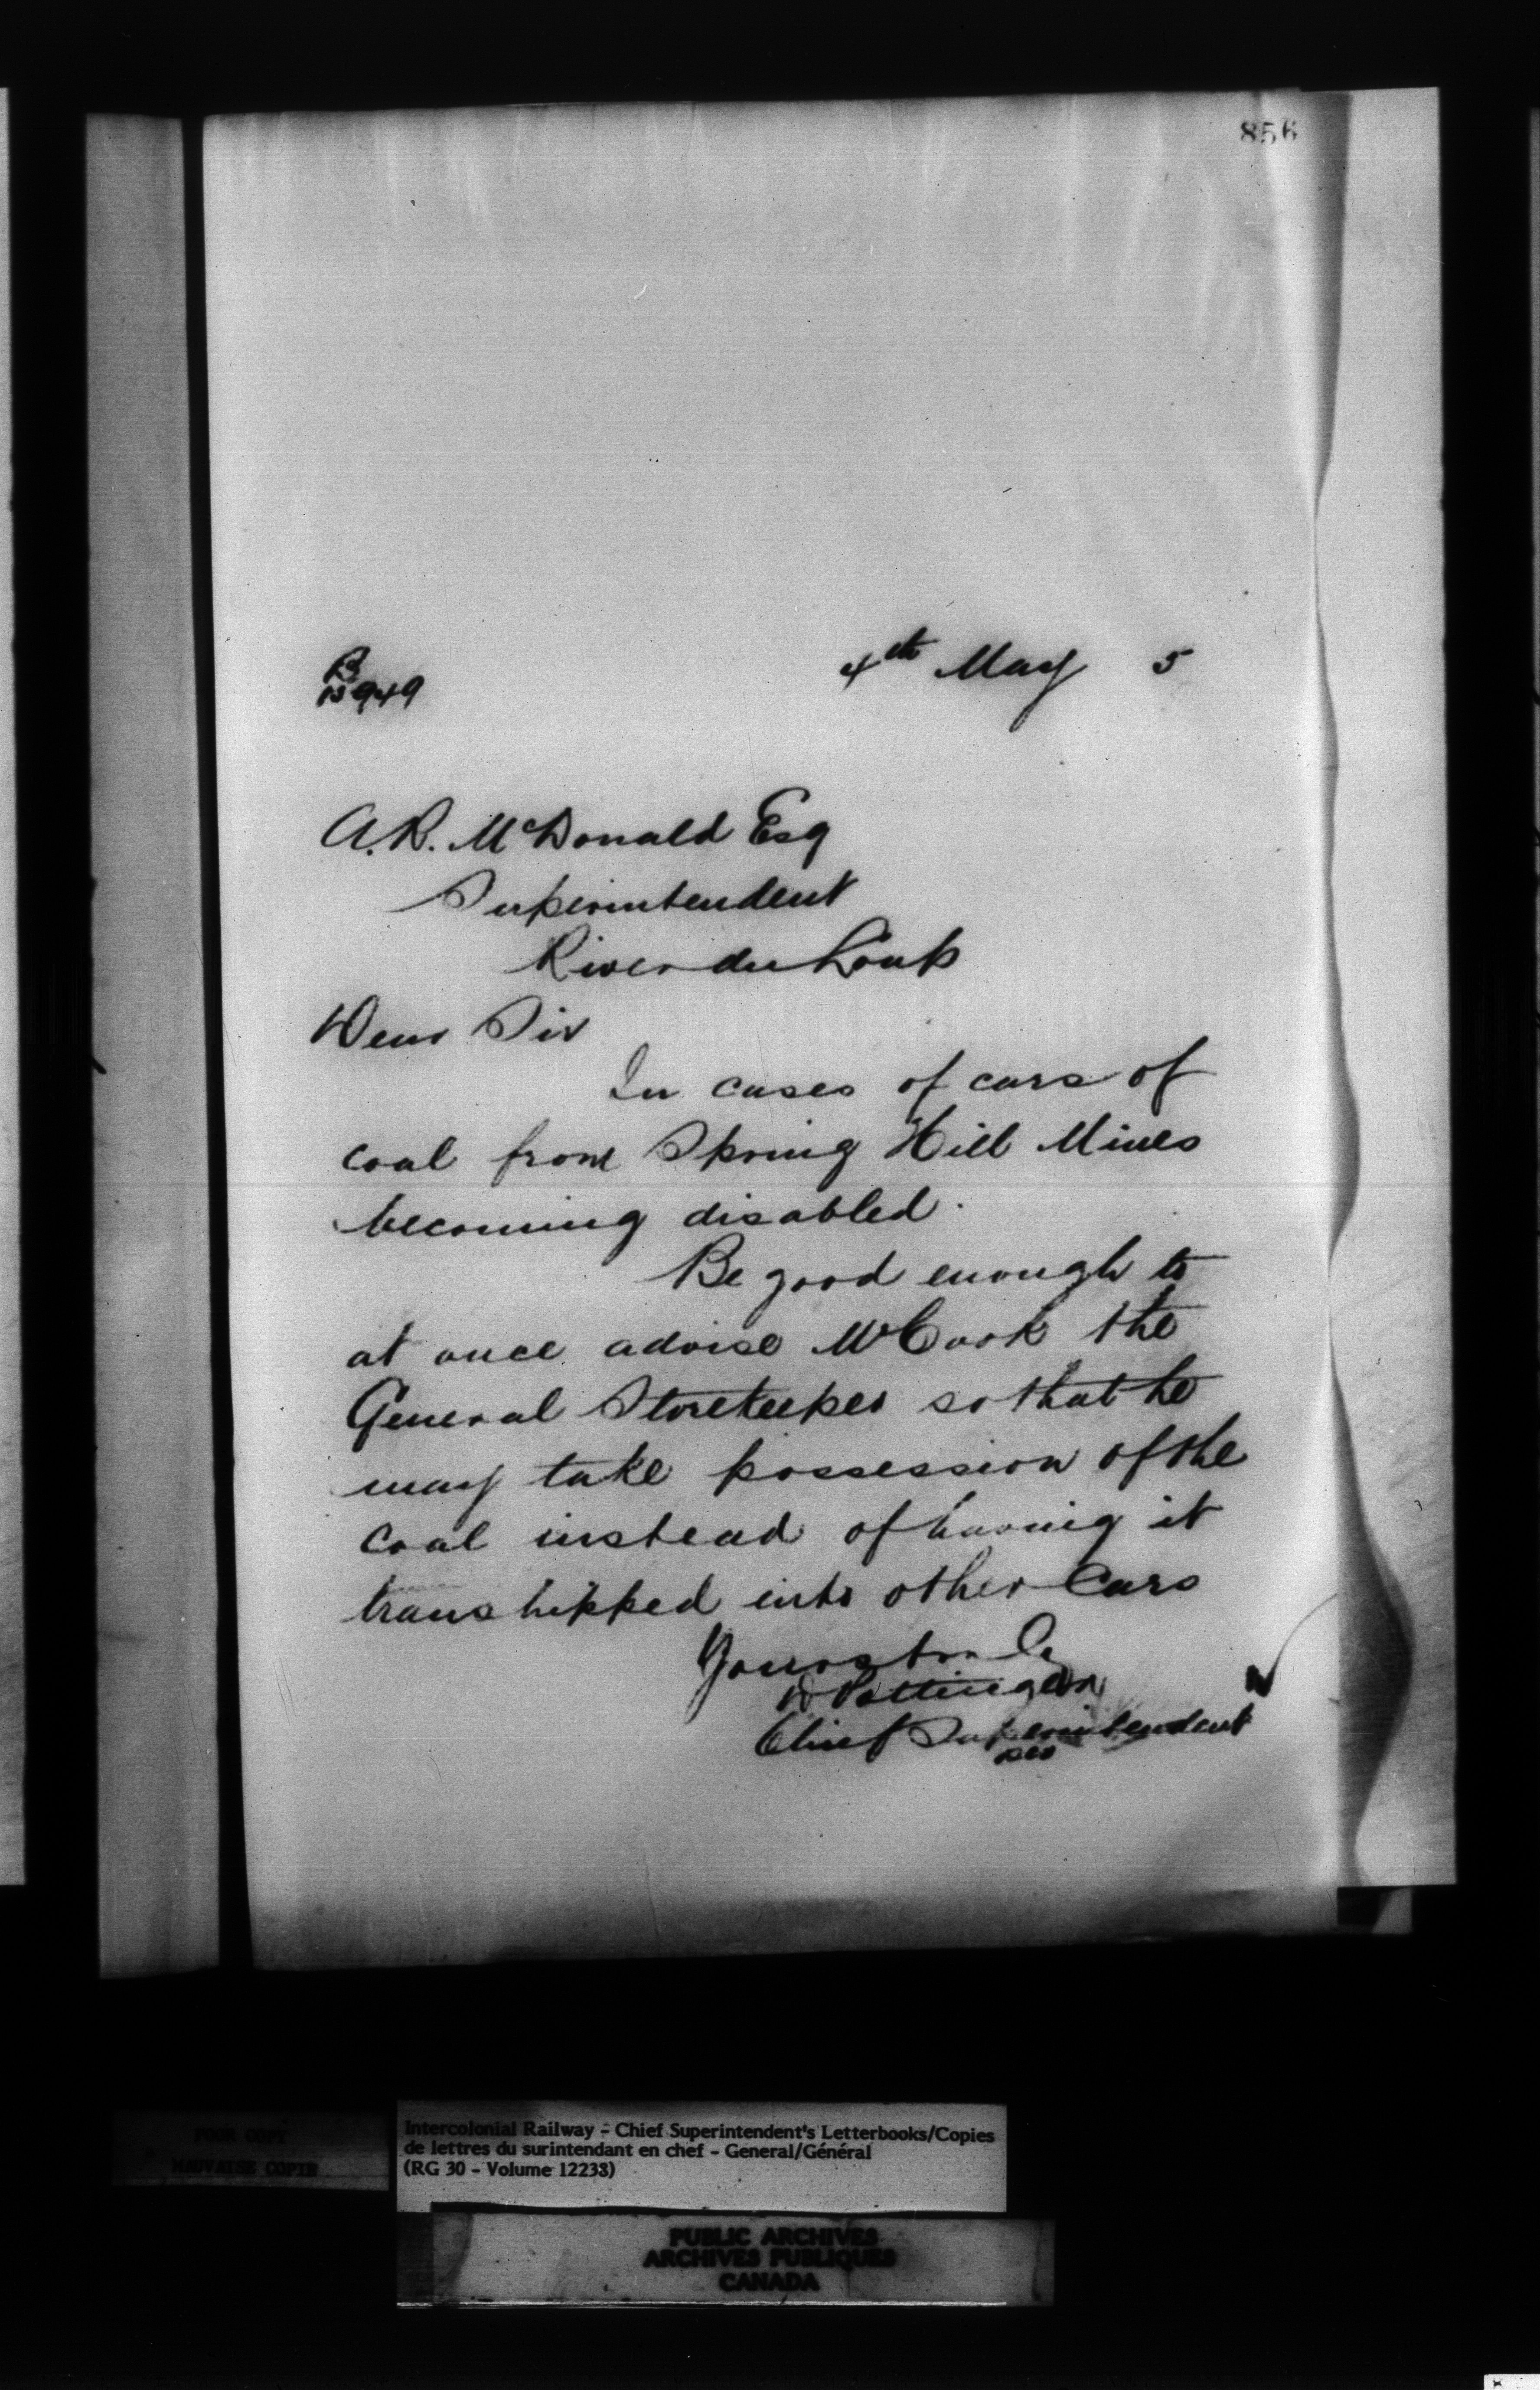 856
B
15949
4th May 5
A.R. McDonald Esq
Superintendent
River du Loup
Dear Sir
In cases of cars of
coal from Spring Hill Mines
becoming disabled.
Be good enough to
at once advise Mr Cook the
General Storekeeper so that he
may take possession of the
coal instead of having it
transhipped into other Cars
Yours truly
D Pottinger
Chief Superintendent
POOR COPY
MAUVAISE COPIE
Intercolonial Railway - Chief Superintendent's Letterbooks/Copies
de lettres du surintendant en chef - General/Général
(RG 30 - Volume 12238)
PUBLIC ARCHIVES
ARCHIVES PUBLIQUES
CANADA